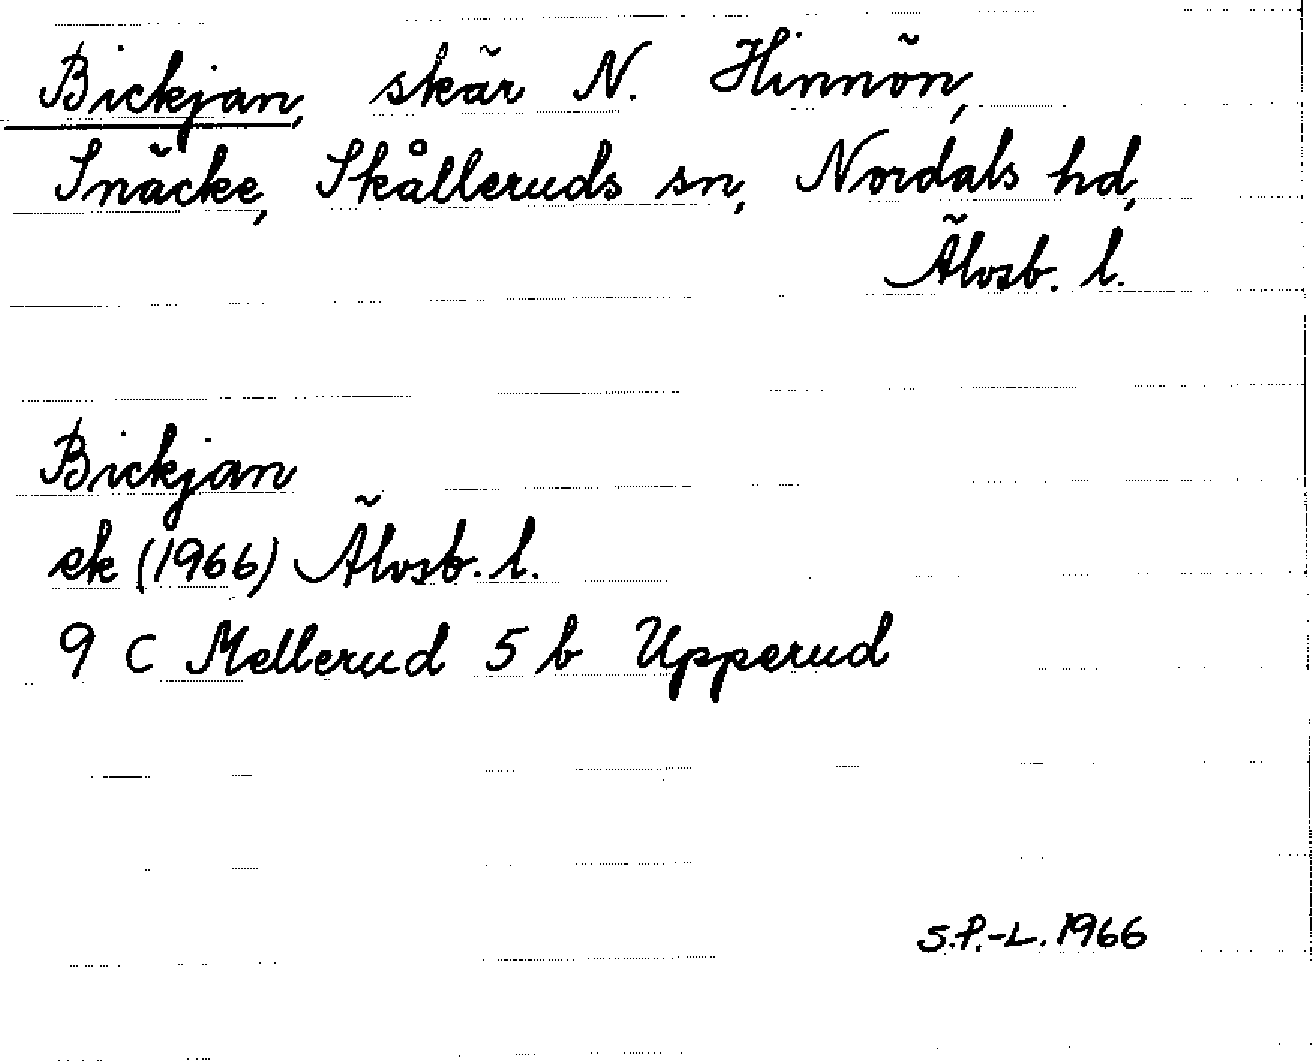 Bickjan, skär N. Hinnön,
Snäcke, Skålleruds sn, Nordals hd,
Älvsb. l.
Bickjan
ek (1966) Älvsb. l.
9 C Mellerud 5 b Upperud
S.P.-L. 1966